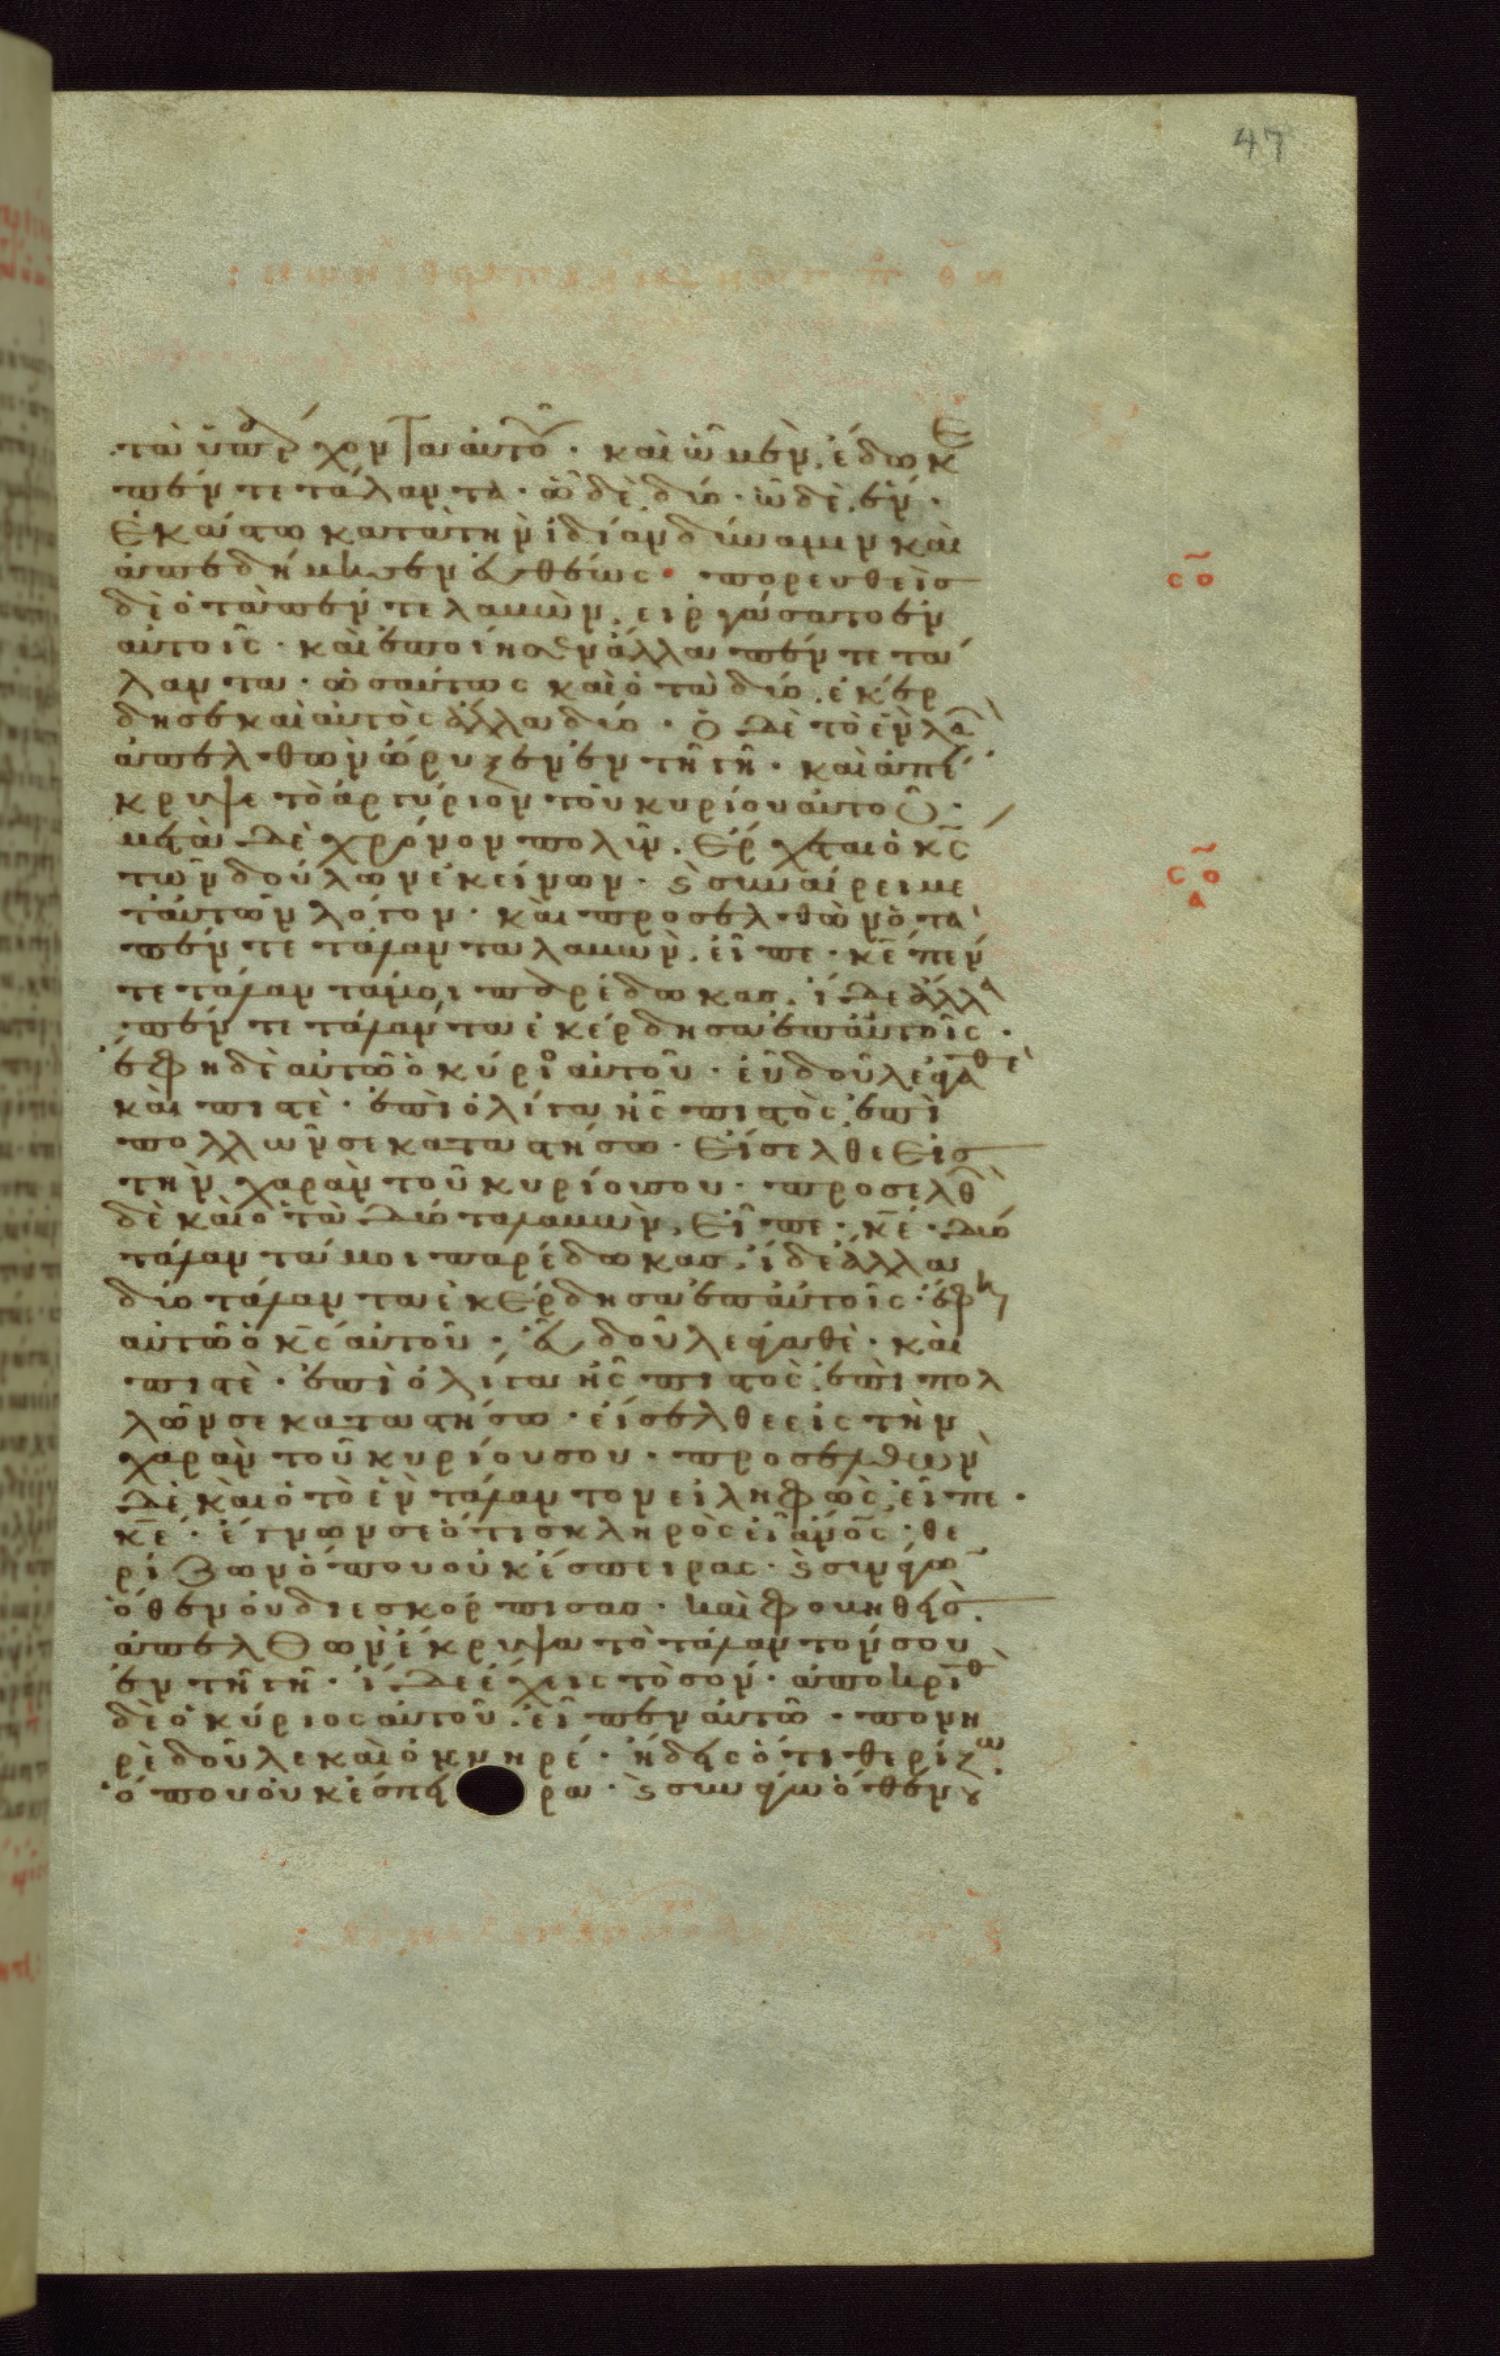 47
τὰ ὑπάρχοντα αὐτοῦ· καὶ ᾧ μὲν, ἔδωκε
πέντε τάλαντα· ᾧ δὲ δύο· ᾧ δὲ, ἕν·
ἑκάστω κατὰ τὴν ἰδίαν δύναμιν καὶ
ἀπεδήμησεν εὐθέως· πορευθεὶσ
δὲ ὁ τὰ πέντε λαβὼν, εἰργάσατο ἐν
αὐτοῖς· καὶ ἐποίησεν ἄλλα πέντε τά
λαντα· ὡσαύτως καὶ ὁ τὰ δύο, ἐκέρ
δησε καὶ αὐτὸς ἄλλα δύο· ὁ δὲ τὸ ἓν λα
ἀπελθὼν ὤρυξεν ἐν τῆ γῆ· καὶ ἀπέ
κρυψε τὸ ἀργύριον τοῦ κυρίου αὐτοῦ·
μετὰ δὲ χρόνον πολὺν, ἔρχεται ὁ κς
τῶν δούλων ἐκείνων· ϛ συναίρει με
τ αὐτῶν λόγον· καὶ προσελθὼν ὁ τὰ
πέντε τάλαντα λαβὼν, εἶπε· κε πέν
τε τάλαντά μοι παρέδωκασ, ἴδε ἄλλα
πέντε τάλαντα ἐκέρδησα ἐπ αὐτοῖς·
ἔφη δὲ αὐτῶ ὁ κύριος αὐτοῦ· εὖ δοῦλε ἀγαθὲ
καὶ πιστὲ· ἐπὶ ὀλίγα ἦς πιστὸς, ἐπὶ
πολλῶν σε καταστήσω· εἴσελθε εἰσ
τὴν χαρὰν τοῦ κυρίου σου· προσελθ
δὲ καὶ ὁ τὰ δύο τάλα λαβὼν, εἶπε· κε· δύο
τάλαντά μοι παρέδωκασ, ἴδε ἄλλα
δύο τάλαντα ἐκέρδησα ἐπ αὐτοῖς· ἔφη
αὐτῶ ὁ κς αὐτοῦ· εὖ δοῦλε ἀγαθὲ· καὶ
πιστὲ· ἐπὶ ὀλίγα ἦς πιστὸς, ἐπὶ πολ
λῶν σε καταστήσω· εἴσελθε εἰς τὴν
χαρὰν τοῦ κυρίου σου· προσελθὼν
δὲ καὶ ὁ τὸ ἓν τάλαντον εἰληφὼς, εἶπε·
κε· ἔγνων σε ὅτι σκληρὸς εἶ ανος· θε
ρίζων ὅπου οὐκ ἔσπειρας· ϛ συνάγω
ὅθεν οὐ διεσκόρπισασ· καὶ φοβηθεὶσ,
ἀπελθὼν ἔκρυψα τὸ τάλαντόν σου
ἐν τῆ γῆ· ἴδε ἔχεις τὸ σόν· ἀποκριθ
δὲ ὁ κύριος αὐτοῦ, εἶπεν αὐτῶ· πονη
ρὲ δοῦλε καὶ ὀκνηρέ· ἤδεις ὅτι θερίζω
ὅπου οὐκ ἔσπει ρα· ϛ συνάγω ὅθεν ου
σο
σο
α